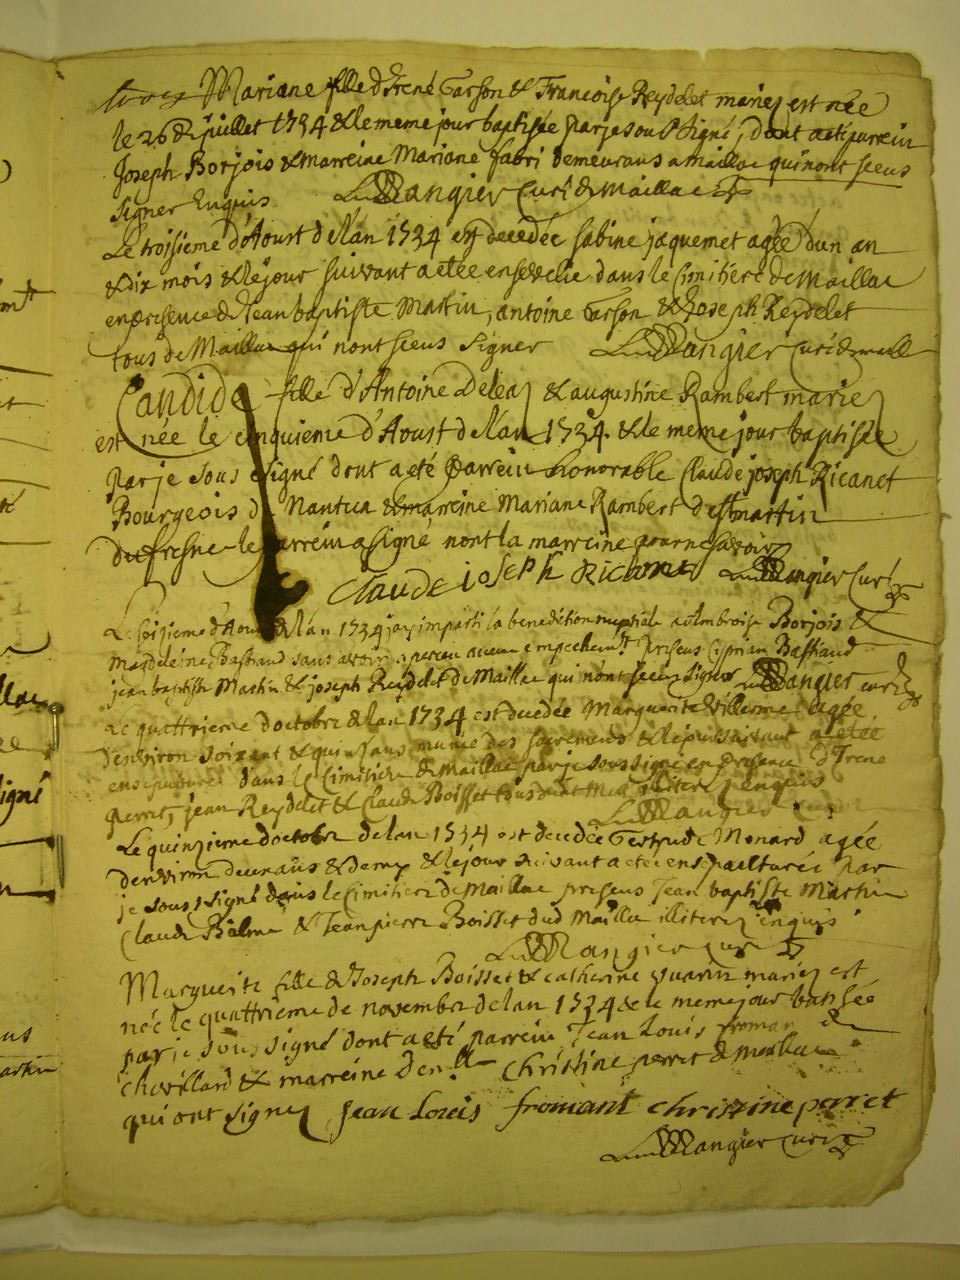 Mariane fille d'Irené Tarson & Francoise Reydelet mariez est née
le 26 de juillet 1734 & le meme jour baptisée par je sousigné, dont a eté parrein
Joseph Borjois & marreine Mariane fabri demeurans a maillac qui nont sceus
signer enquis Mangier Curé de Maillac
Le troisieme d'Aoust de l'an 1734 est decedée sabine jaquemet agée d'un an
& dix mois & le jour suivant a etée ensevelie dans le Cimitiere de Maillac
en presence de Jean baptiste Martin, antoine Tarson & Joseph Reydelet
tous de Maillac qui nont sceus signer Mangier Curé de maill
Candide fille d'Antoine Deleaz & augustine Rambert mariez
est née le cinquieme d'Aoust de l'an 1734. & le meme jour baptisée
par je sous signé dont a eté parrein honorable Claude joseph Ricanet
Bourgeois de Nantua & marreine Mariane Rambert de St martin
du fresne le parrein a signé non la marreine pour ne savoir
Claude ioseph Ricanet Mangier Curé
Le seizieme d'Aoust de l'an 1734 jay imparti la benediction nuptiale a Ambroise Borjois &
Magdeleine Bastiand sans avoir aperceu aucun empechemt. Presens Ciprian Bastiand
jean baptiste Martin & joseph Reydelet de Maillac qui nont sceus signer Mangier curé
Le quattrieme d'octobre de l'an 1734 est decedée Marguerite Villerme agée
d'environ soixant & quinz ans munie des sacremens & le jour suivant a etée
ensepulturée dans le Cimitiere de Maillac par je sous signé en presence d'Irene
perret, jean Reydelet & Claude Boisset tous dudt Mail illiterez enquis
Mangier Curé
Le quinzieme d'octobre de l'an 1734 est decedée Gertrude Monard agée
d'environ deux ans & demy & le jour suivant a etée ensepulturée par
je sous signé dans le Cimitiere de Maillac presens Jean baptiste Martin
Claude Balme & Jean pierre Boisset dud Maillac illiterez enquis
Mangier curé
Marguerite fille de Joseph Boisset & catherine Vuarin mariez est
née le quattrieme de novembre de l'an 1734 & le meme jour batisée
par je sous signé dont a eté parrein Jean Louis froman de
chevillard & marreine Denlle Christine perret de maillac
qui ont signez Jean Louis fromant christine perret
Mangier Curé